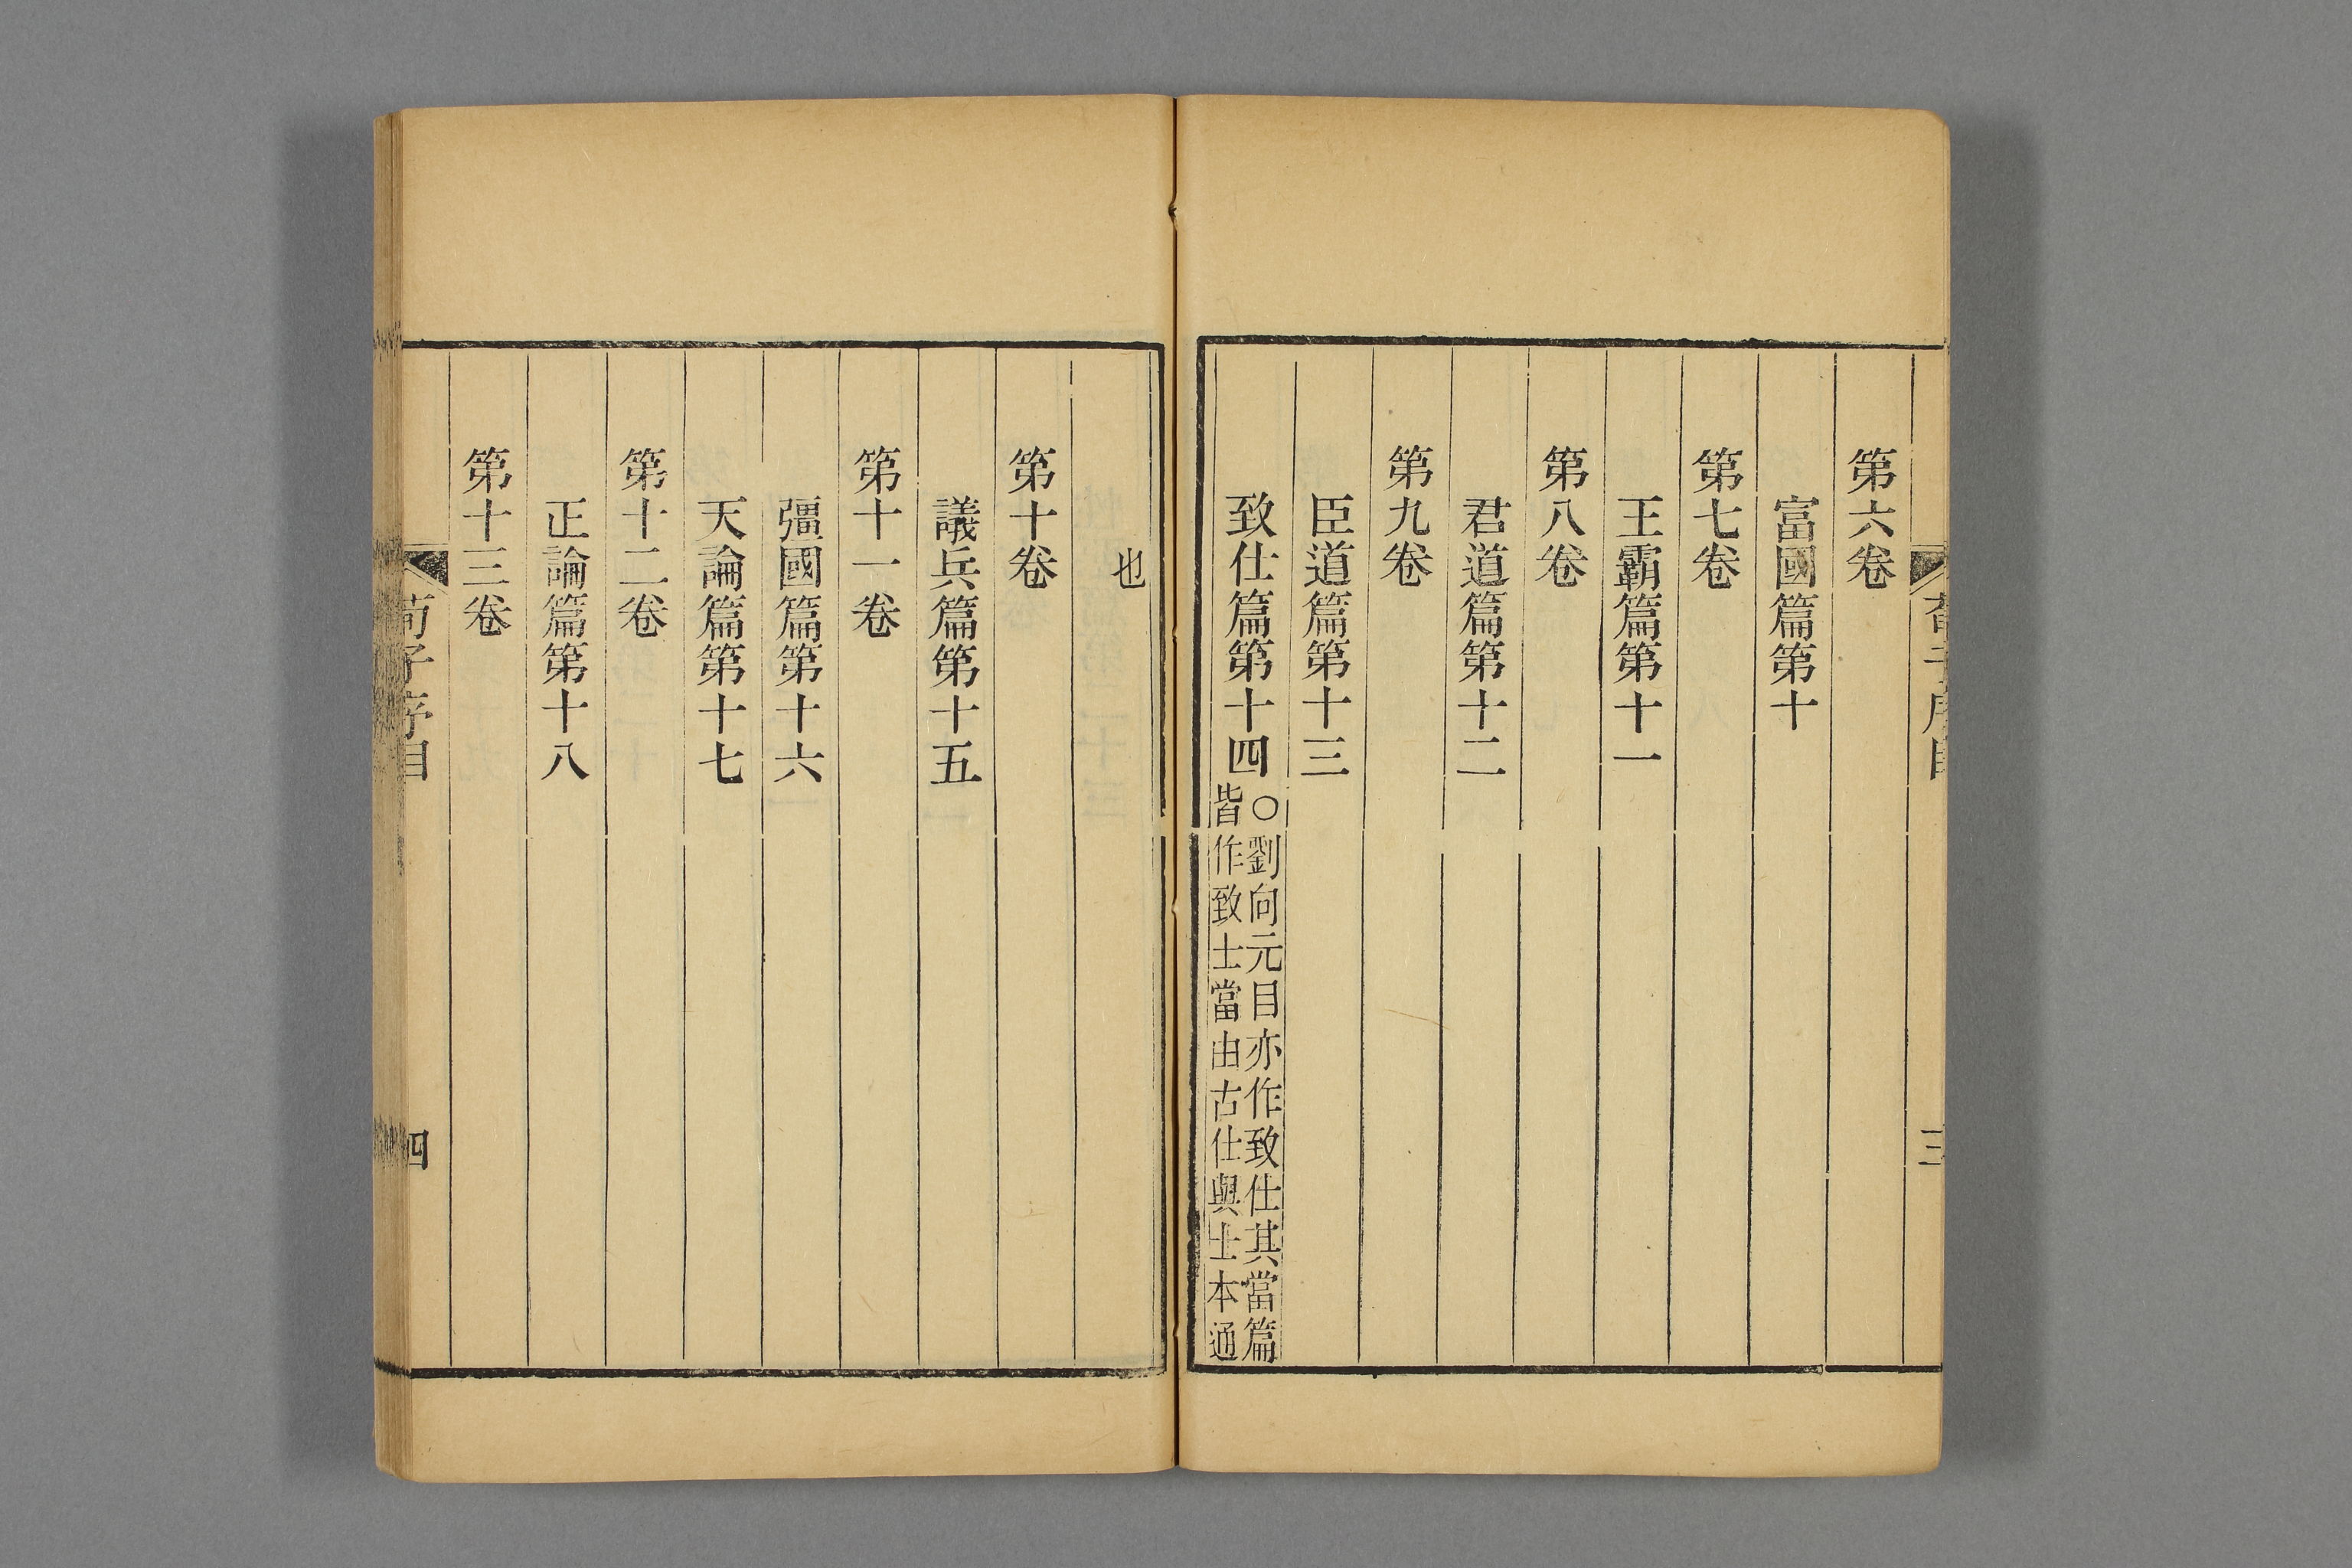 第六卷
富國篇第十
第七卷
王霸篇第十一
第八卷
君道篇第十二
第九卷
臣道篇第十三
致仕篇第十四
○劉向元目亦作致仕其當篇
皆作致士當由古仕與士本通
也
第十卷
議兵篇第十五
第十一卷
彊國篇第十六
天論篇第十七
第十二卷
正論篇第十八
第十三卷
荀子序目
四